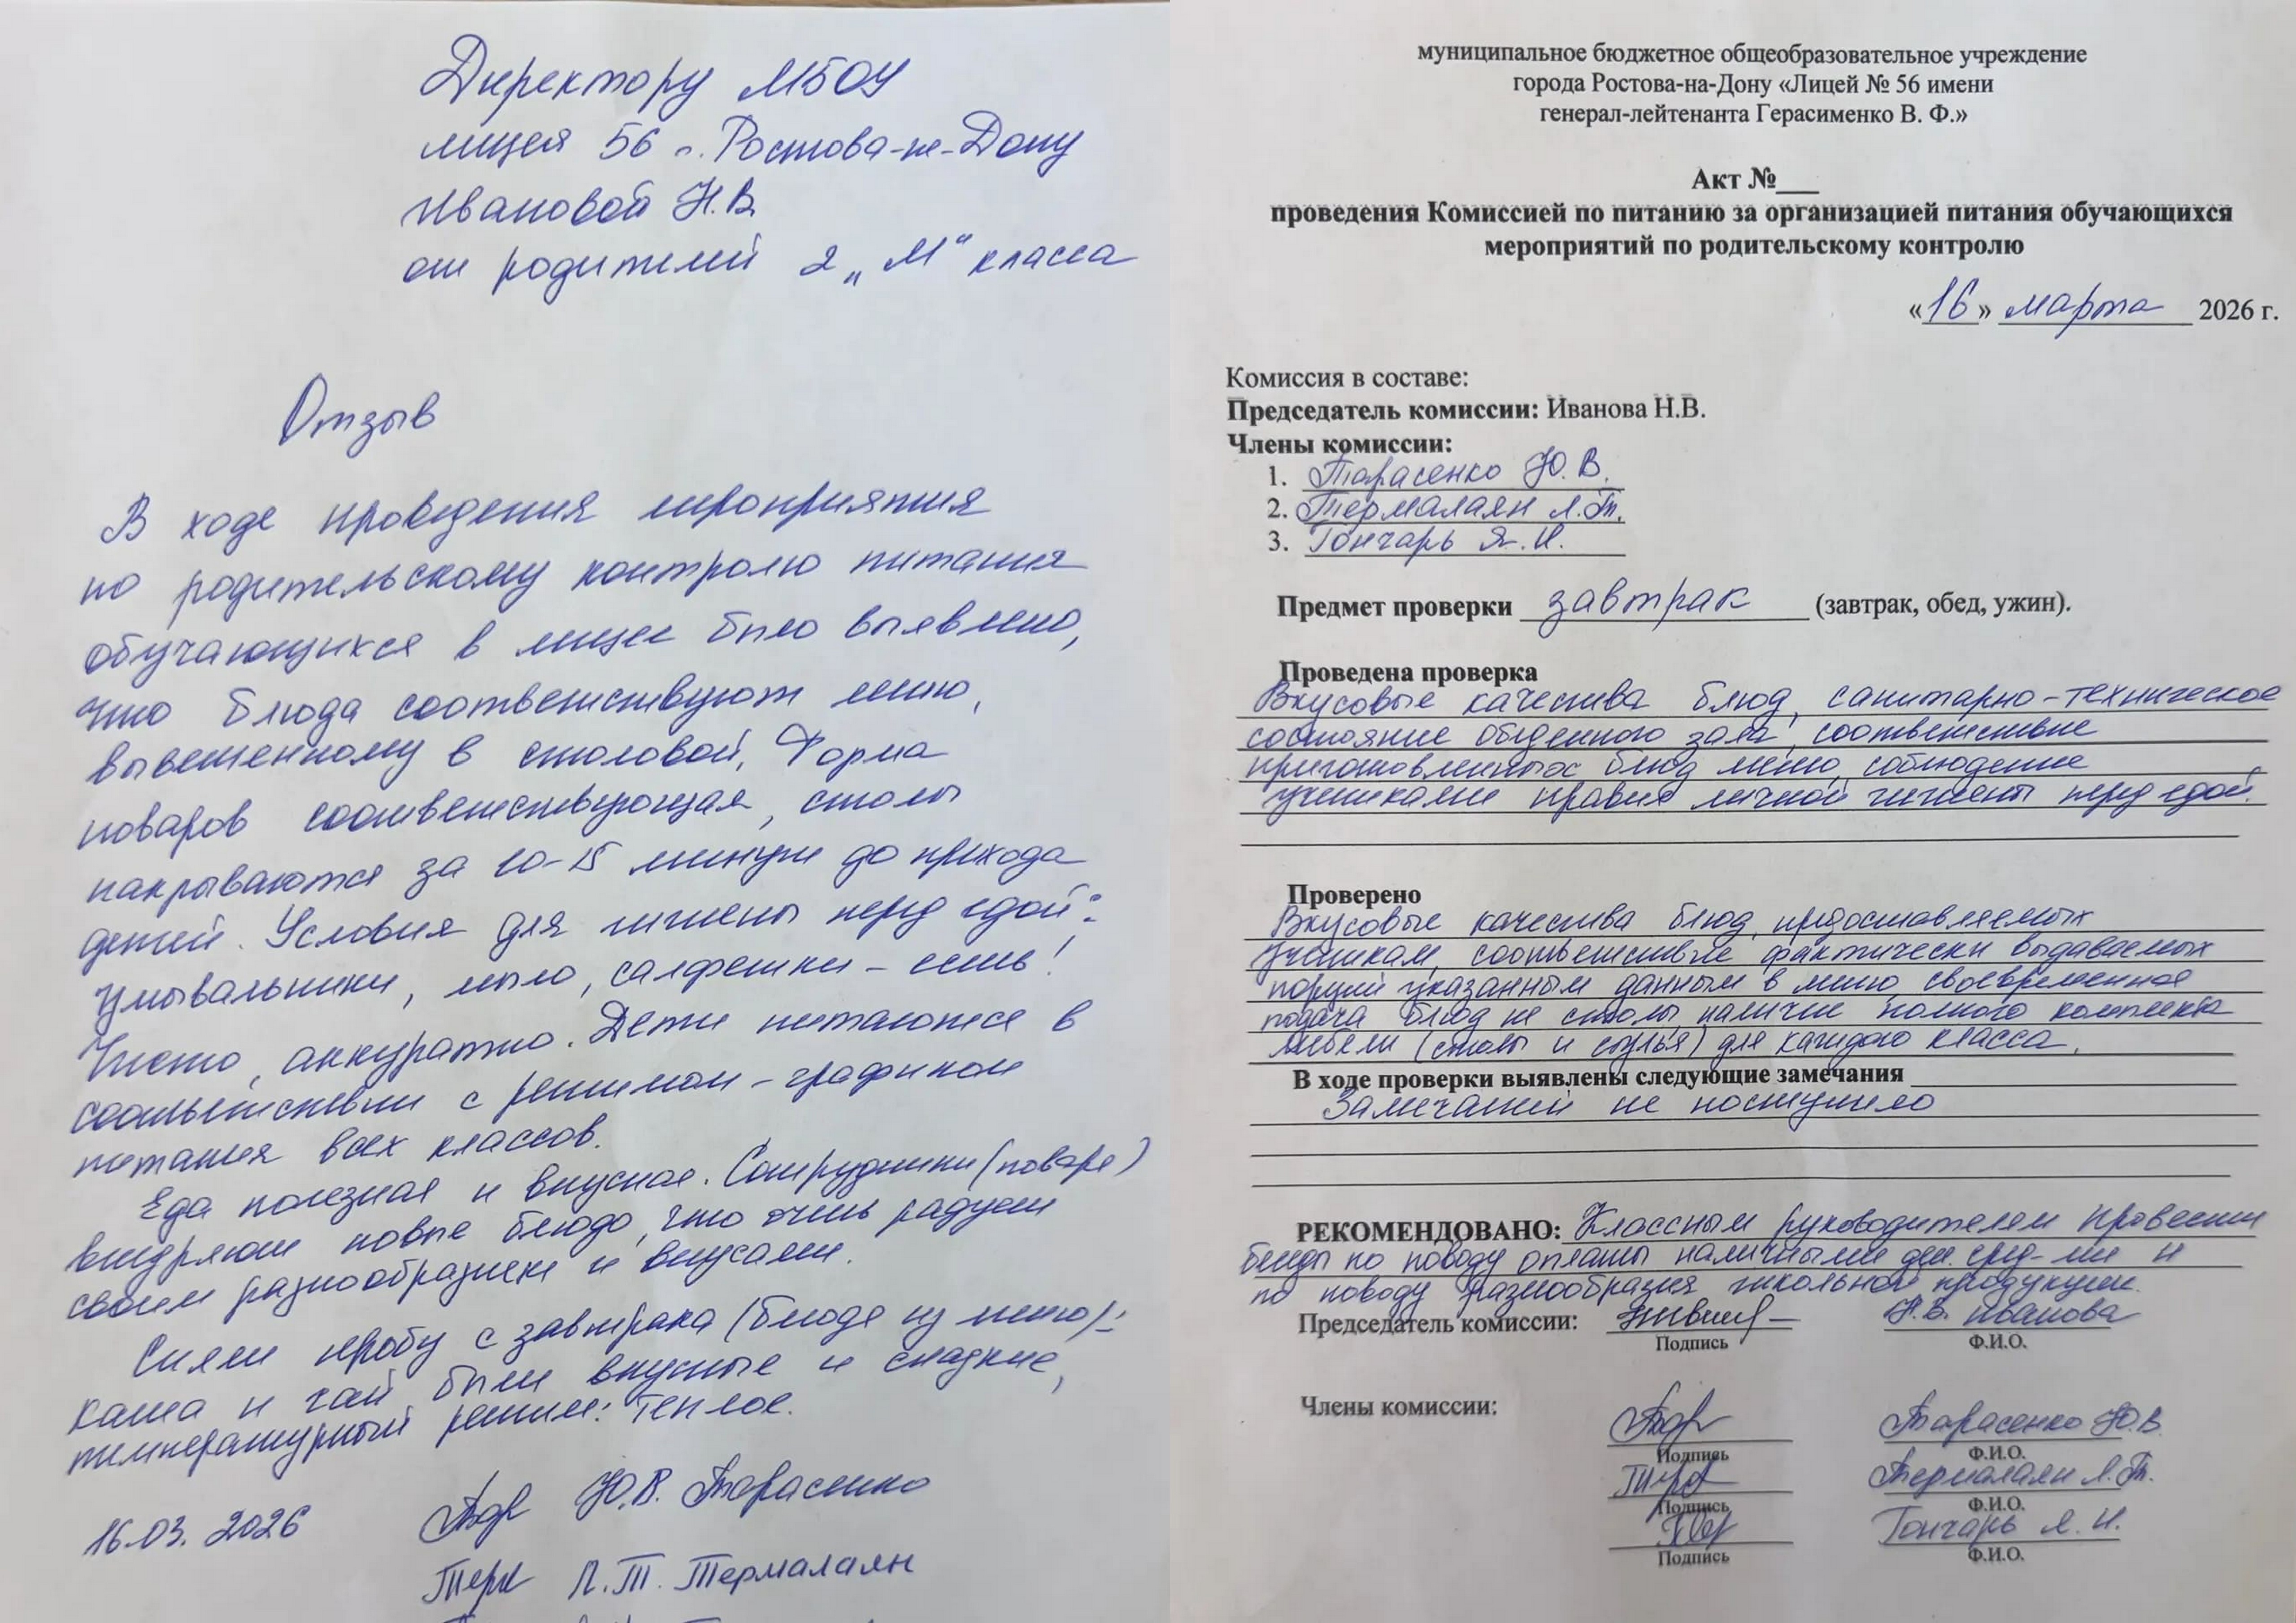 Директору МБОУ
лицея 56 г. Ростова-на-Дону
Ивановой Н.В.
от родителей 2 „М“ класса
Отзыв
В ходе проведения мероприятия
по родительскому контролю питания
обучающихся в лицее было выявлено,
что блюда соответствуют меню,
вывешенному в столовой. Форма
поваров соответствующая, столы
накрываются за 10-15 минут до прихода
детей. Условия для гигиены перед едой:
умывальники, мыло, салфетки – есть!
Чисто, аккуратно. Дети питаются в
соответствии с режимом-графиком
питания всех классов.
Еда полезная и вкусная. Сотрудники (повара)
внедряют новые блюдо, что очень радует
своим разнообразием и вкусами.
Сняли пробу с завтрака (блюда из меню):
каша и чай были вкусные и сладкие,
температурный режим: теплое.
16.03.2026 Ю.В. Тарасенко
Л.Т. Термалаян
муниципальное бюджетное общеобразовательное учреждение
города Ростова-на-Дону «Лицей № 56 имени
генерал-лейтенанта Герасименко В. Ф.»
Акт №___
проведения Комиссией по питанию за организацией питания обучающихся
мероприятий по родительскому контролю
«16» марта 2026 г.
Комиссия в составе:
Председатель комиссии: Иванова Н.В.
Члены комиссии:
1. Тарасенко Ю.В.
2. Термалаян Л.Т.
3. Гончарь Я.И.
Предмет проверки завтрак (завтрак, обед, ужин).
Проведена проверка
Вкусовые качества блюд, санитарно-техническое
состояние обеденного зала, соответствие
приготовленных блюд меню, соблюдение
учениками правил личной гигиены перед едой.
Проверено
Вкусовые качества блюд, предоставляемых
ученикам, соответствие фактически выдаваемых
порций указанным данным в меню, своевременная
подача блюд на столы, наличие полного комплекта
мебели (столы и стулья) для каждого класса.
В ходе проверки выявлены следующие замечания
Замечаний не поступило
РЕКОМЕНДОВАНО: Классным руководителем провести
беседы по поводу оплаты наличными ден. сред-ми и
по поводу разнообразия школьной продукции.
Председатель комиссии: Н.В. Иванова
Подпись Ф.И.О.
Члены комиссии: Тарасенко Ю.В.
Подпись Ф.И.О.
Термалаян Л.Т.
Подпись Ф.И.О.
Гончарь Я.И.
Подпись Ф.И.О.